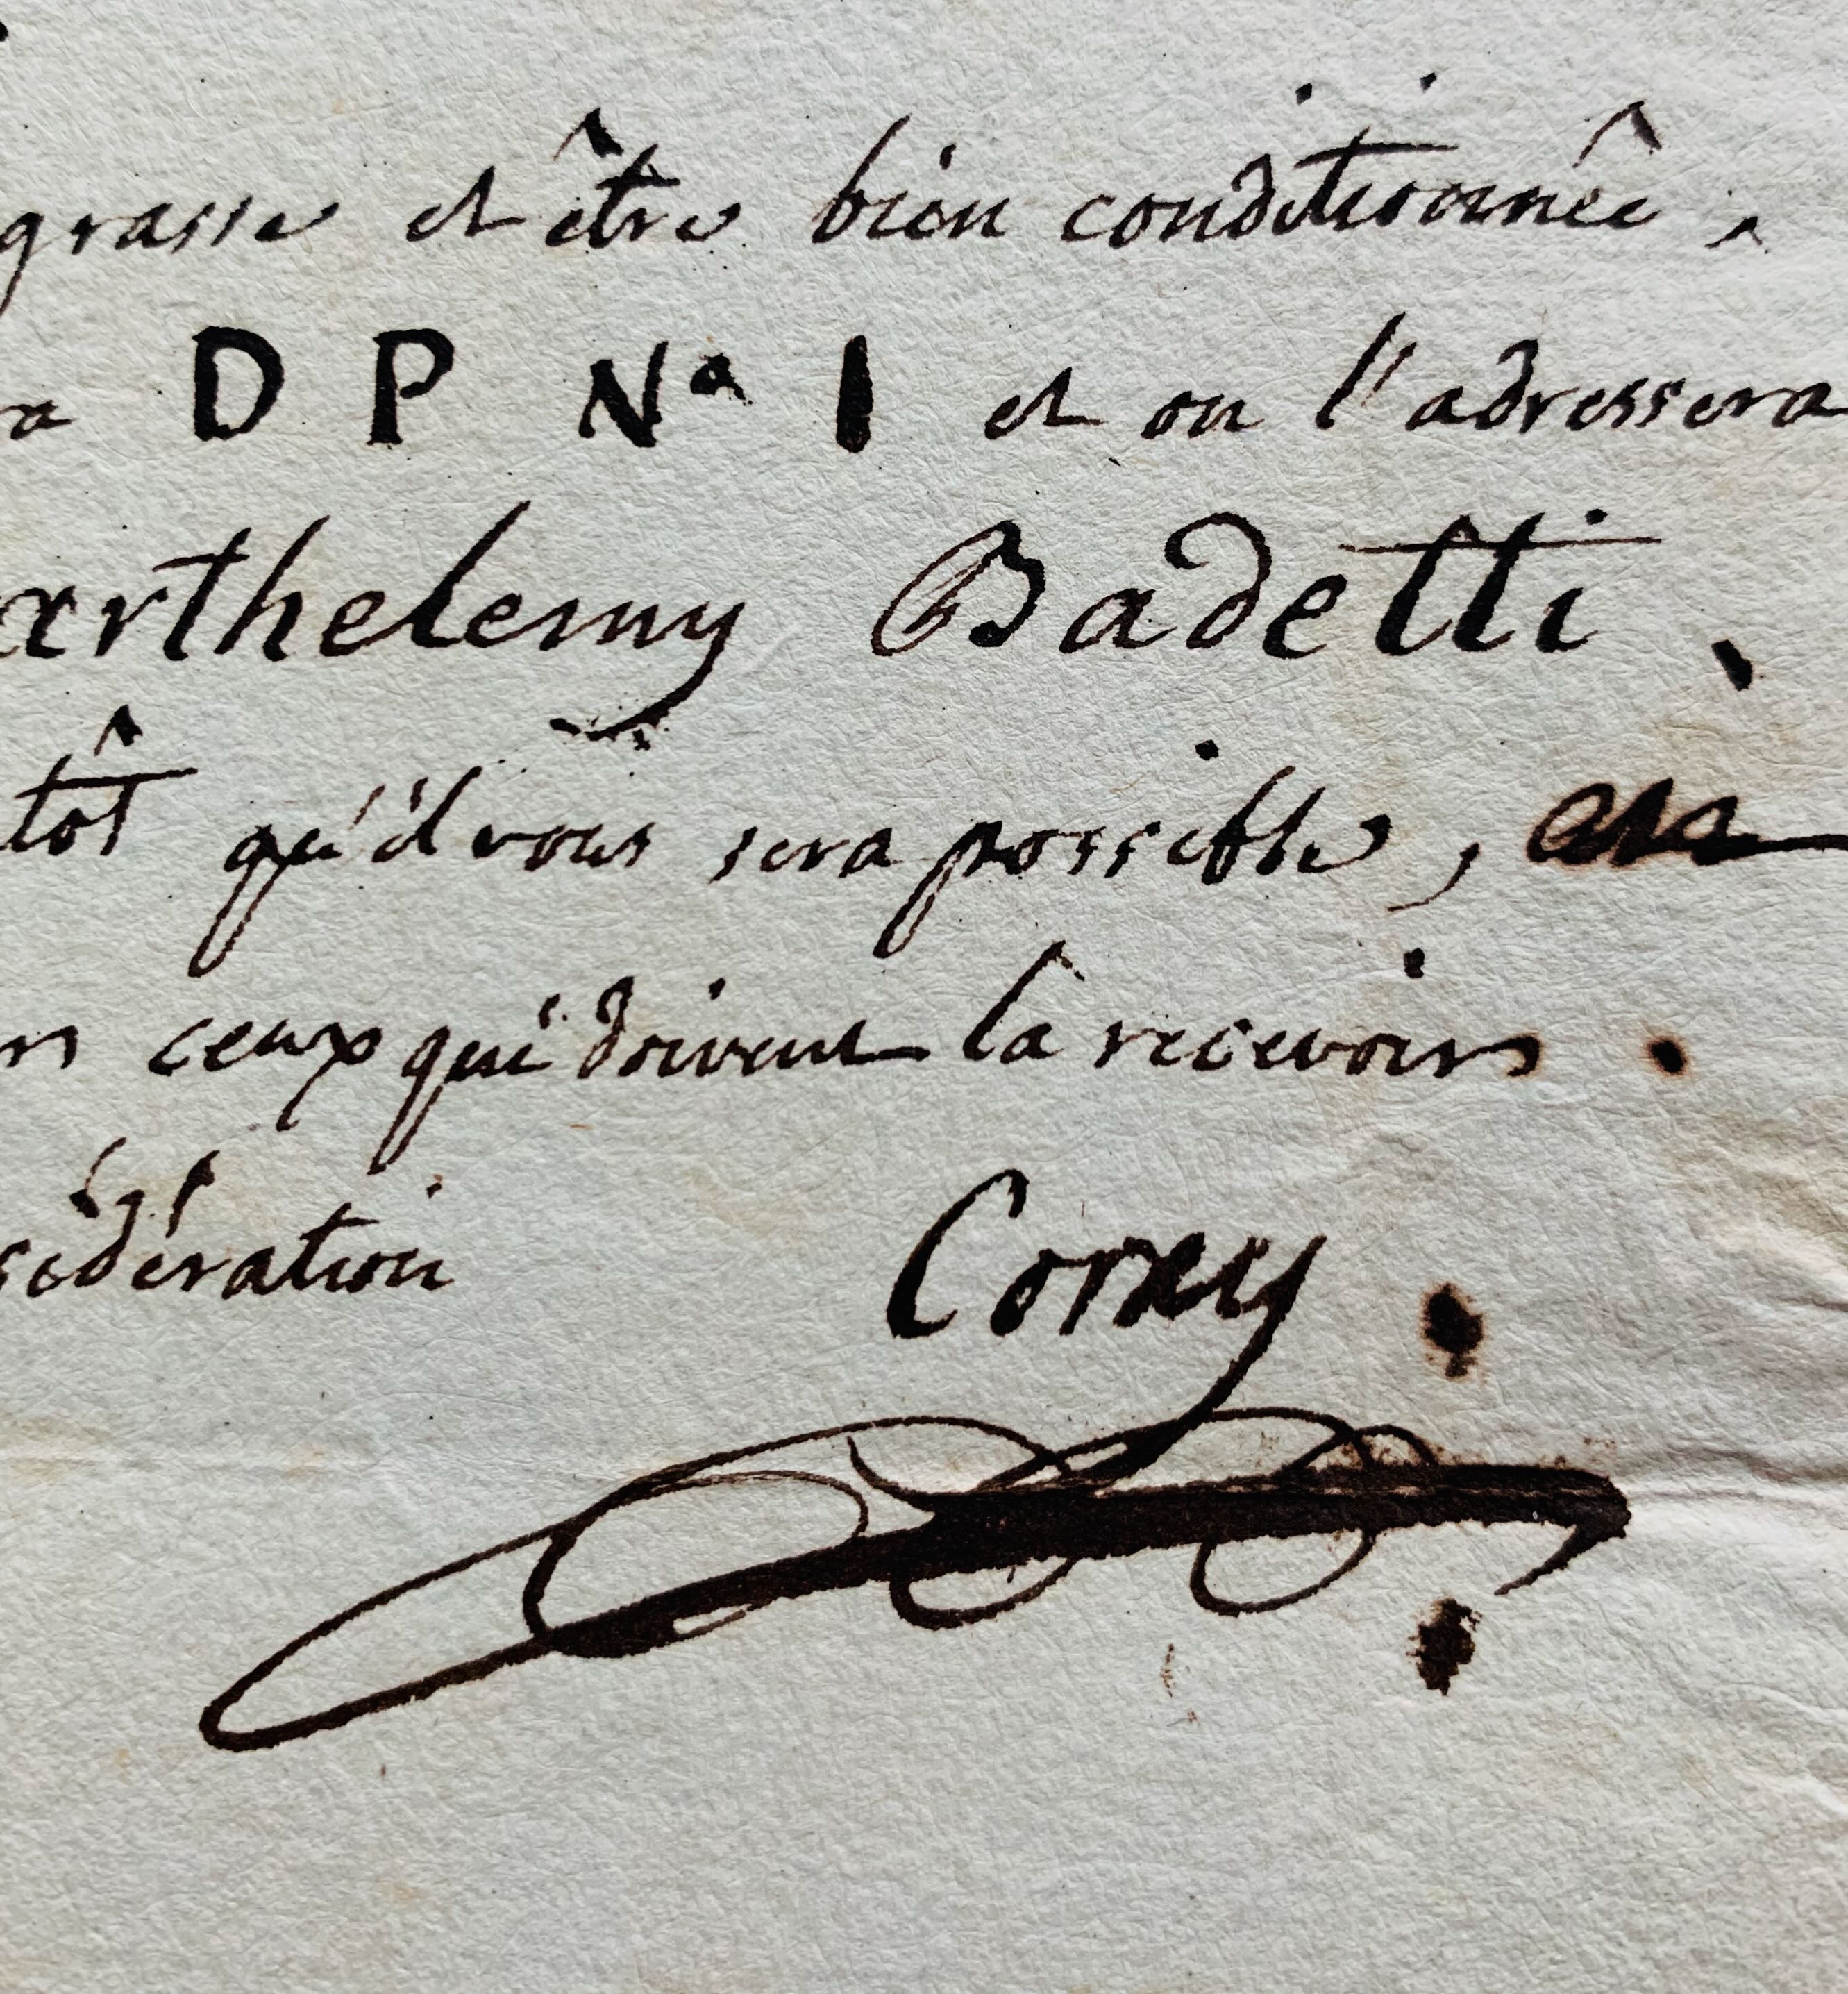 grasse et être bien conditionnée,
a D P Nº 1 et on l'adressera
arthelemy Badetti.
tôt qu'il vous sera possible,
ceux qui doivent la recevoir.
sidération